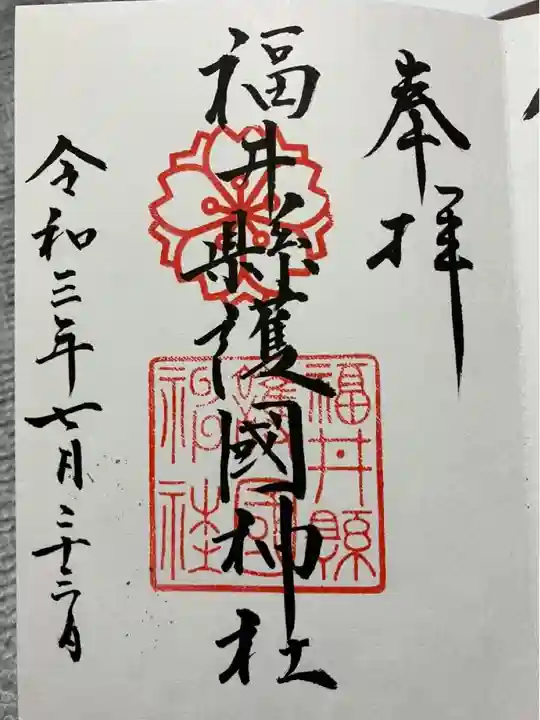 奉拝
福井縣護國神社
福井縣護國神社
令和三年七月二十三日